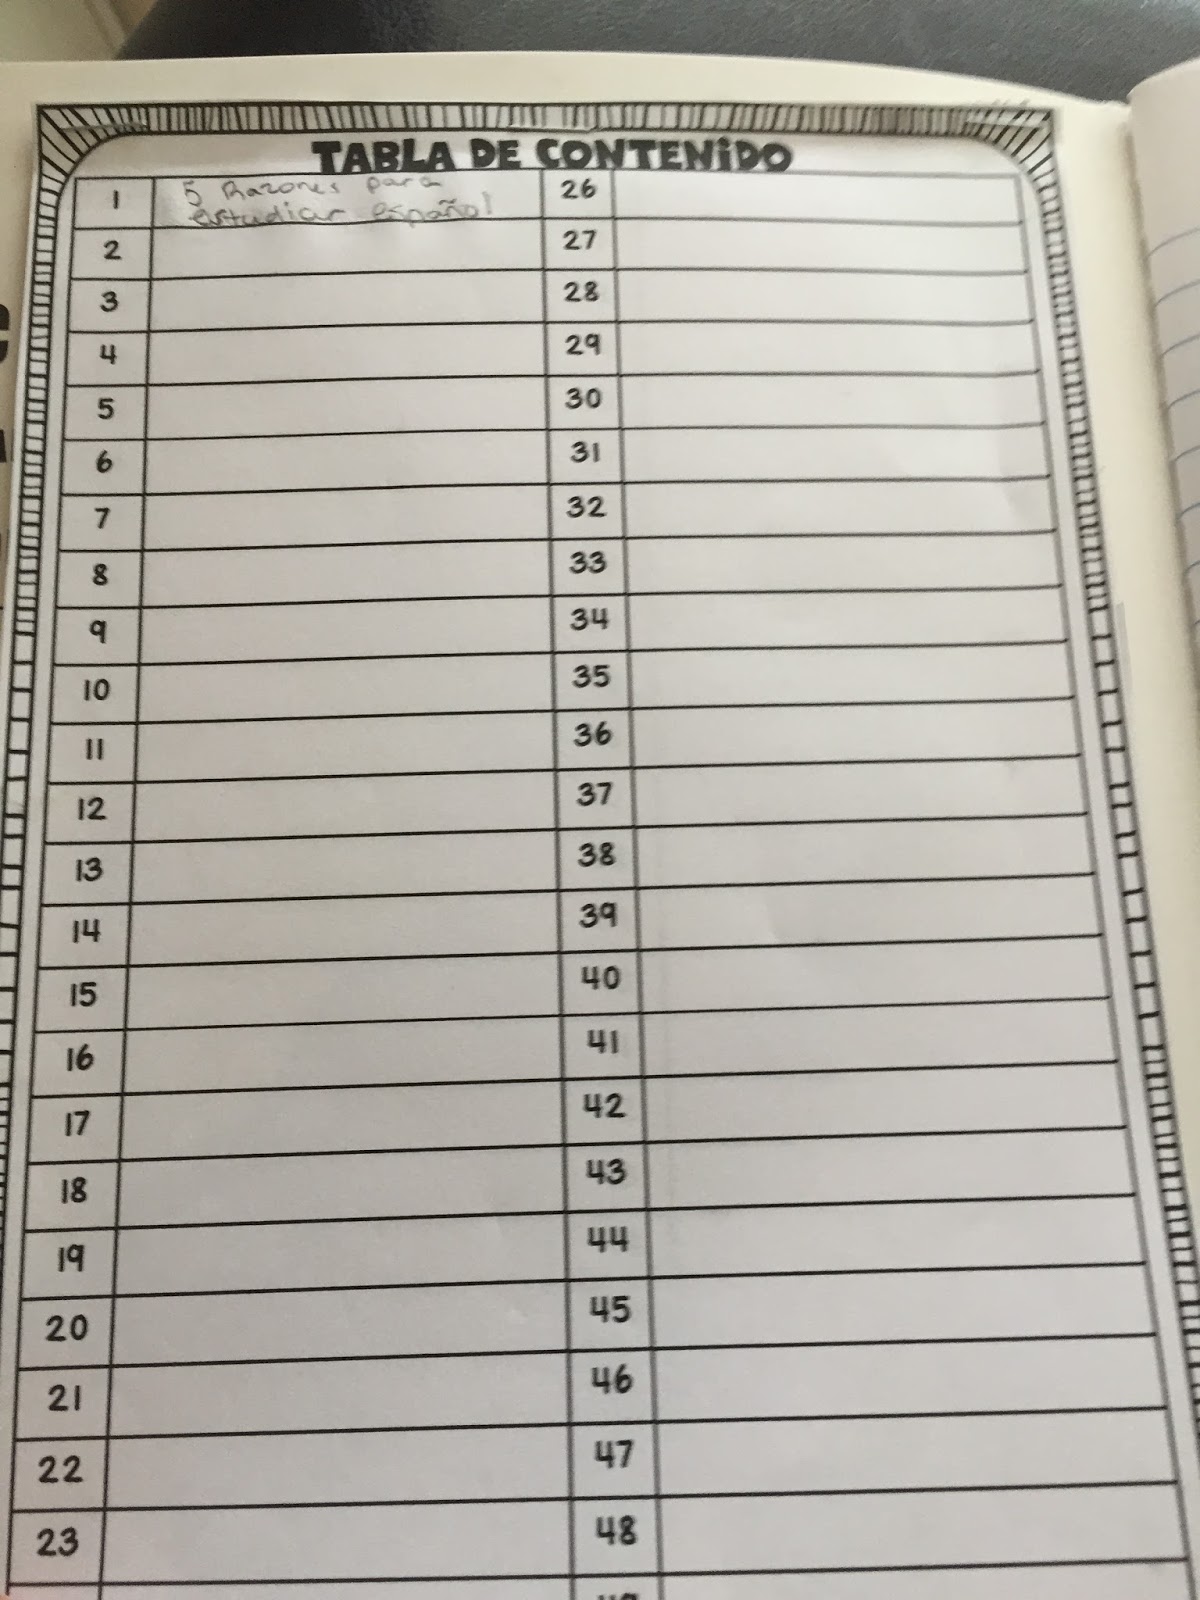 TABLA DE CONTENIDO
1 5 Razones para 26
estudiar español
2 27
3 28
4 29
5 30
6 31
7 32
8 33
9 34
10 35
11 36
12 37
13 38
14 39
15 40
16 41
17 42
18 43
19 44
20 45
21 46
22 47
23 48